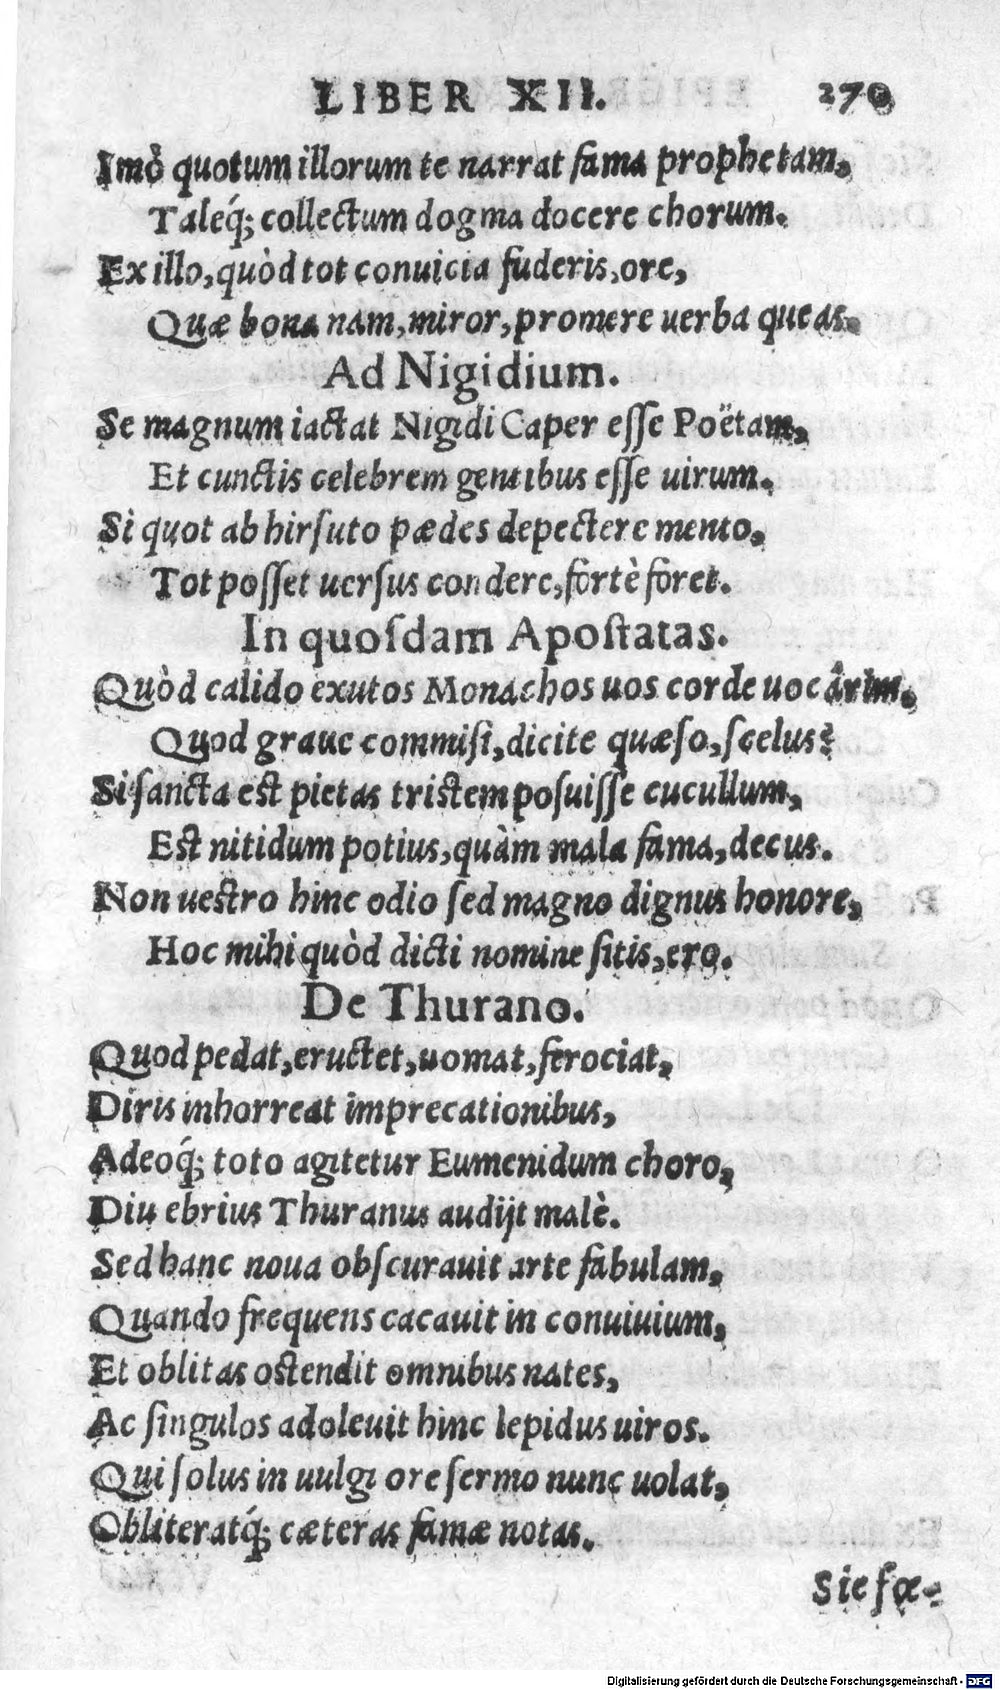 LIBER XII. 270
Imò quotum illorum te narrat fama prophetam,
Taleq́; collectum dogma docere chorum.
Ex illo, quòd tot conuicia fuderis, ore,
Quæ bona nam, miror, promere uerba queas.
Ad Nigidium.
Se magnum iactat Nigidi Caper esse Poëtam,
Et cunctis celebrem gentibus esse uirum.
Si quot ab hirsuto pædes depectere mento,
Tot posset uersus condere, fortè foret.
In quosdam Apostatas.
Quòd calido exutos Monachos uos corde uocârim,
Quod graue commisi, dicite quæso, scelus?
Si sancta est pietas tristem posuisse cucullum,
Est nitidum potius, quàm mala fama, decus.
Non uestro hinc odio sed magno dignus honore,
Hoc mihi quòd dicti nomine sitis, ero.
De Thurano.
Quod pedat, eructet, uomat, ferociat,
Diris inhorreat imprecationibus,
Adeoq́; toto agitetur Eumenidum choro,
Diu ebrius Thuranus audijt malè.
Sed hanc noua obscurauit arte fabulam,
Quando frequens cacauit in conuiuium,
Et oblitas ostendit omnibus nates,
Ac singulos adoleuit hinc lepidus uiros.
Qui solus in uulgi ore sermo nunc uolat,
Obliteratq́; cæteras famæ notas.
Sie fœ-
Digitalisierung gefördert durch die Deutsche Forschungsgemeinschaft - DFG